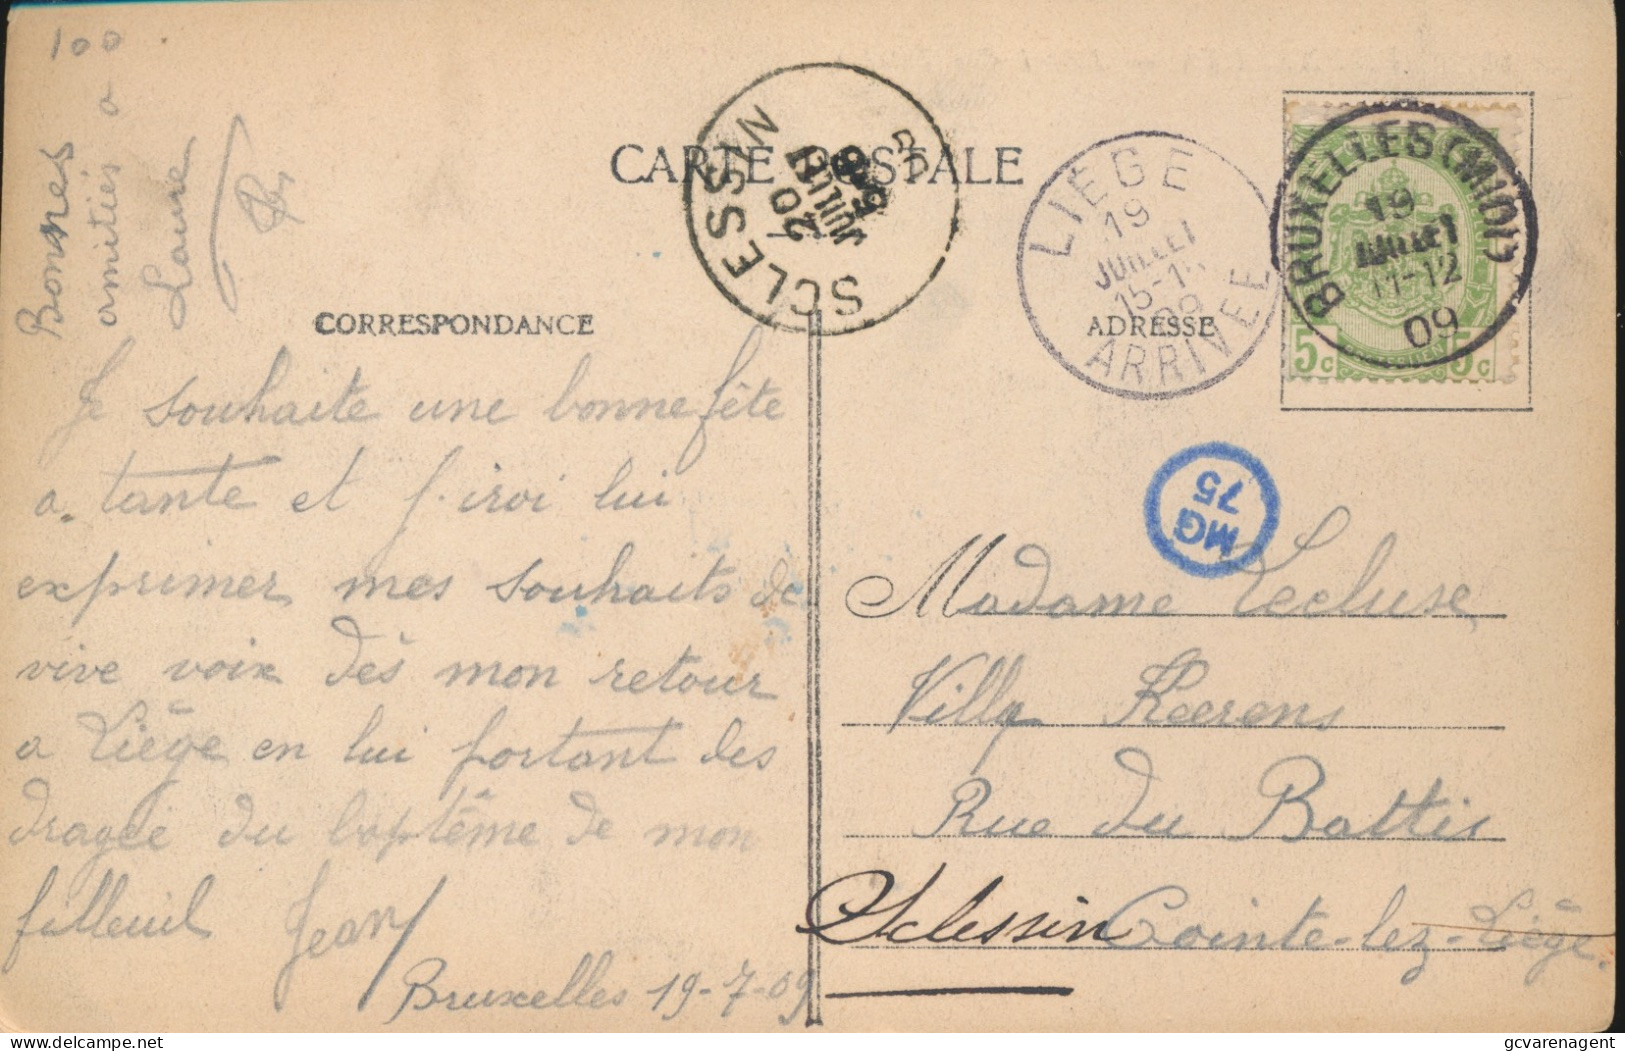 100
Bonnes
amitiés a
Laure
CARTE POSTALE
CORRESPONDANCE
Je souhaite une bonne fête
a tante et j'irai lui
exprimer mes souhaits de
vive voix dès mon retour
a Liège en lui portant des
dragée du baptême de mon
filleuil Jean
Bruxelles 19-7-09
SCLESSIN
20
JUILLET
LIÉGE
19
JUILLET
15-1
09
ARRIVEE
ADRESSE
BRUXELLES (MIDI)
19
JUILLET
11-12
09
5c 5c
MG
75
Madame Lecluse
Villa Keerens
Rue du Battis
Sclessin Cointe-lez-Liège.
gcvarenagent